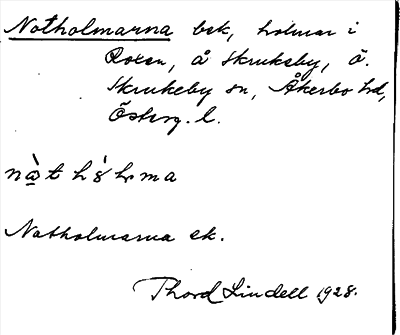 Notholmarna bek, holmar i
Roxen, å Skrukeby, Ö.
Skrukeby sn, Åkerbo hd,
Österg. l.
Notholmarna ek.
Thord Lindell 1928.